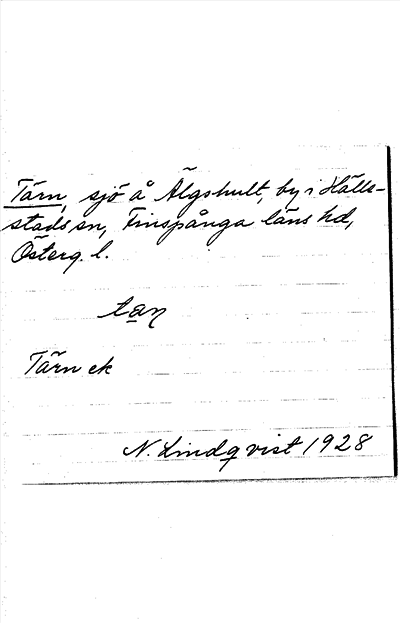 Tärn, sjö å Älgshult, by i Hälle-
stads sn, Finspånga läns hd,
Österg. l.
Tärn ek
N. Lindqvist 1928